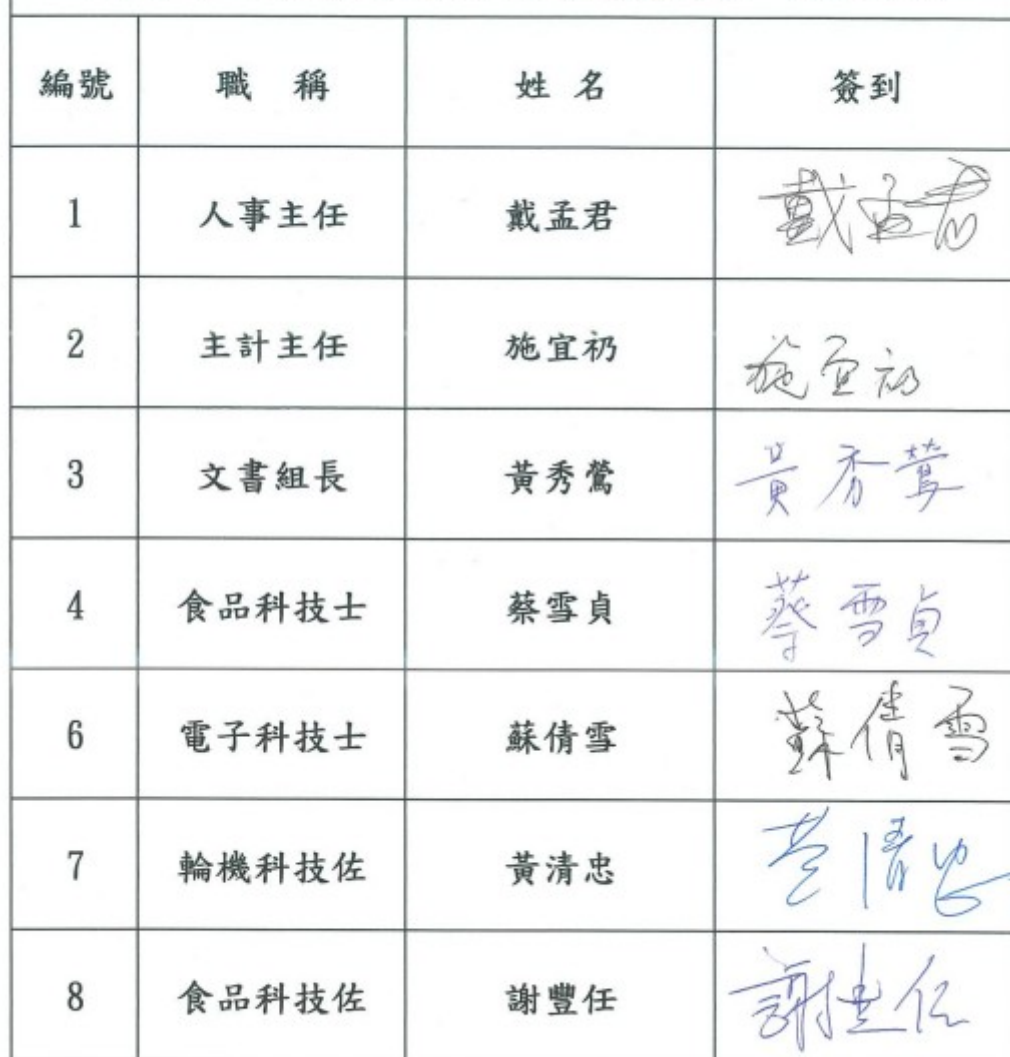 編號 職稱 姓名 簽到
1 人事主任 戴孟君 戴孟君
2 主計主任 施宜礽 施宜礽
3 文書組長 黃秀鶯 黃秀鶯
4 食品科技士 蔡雪貞 蔡雪貞
6 電子科技士 蘇倩雪 蘇倩雪
7 輪機科技佐 黃清忠 黃清忠
8 食品科技佐 謝豐任 謝豐任